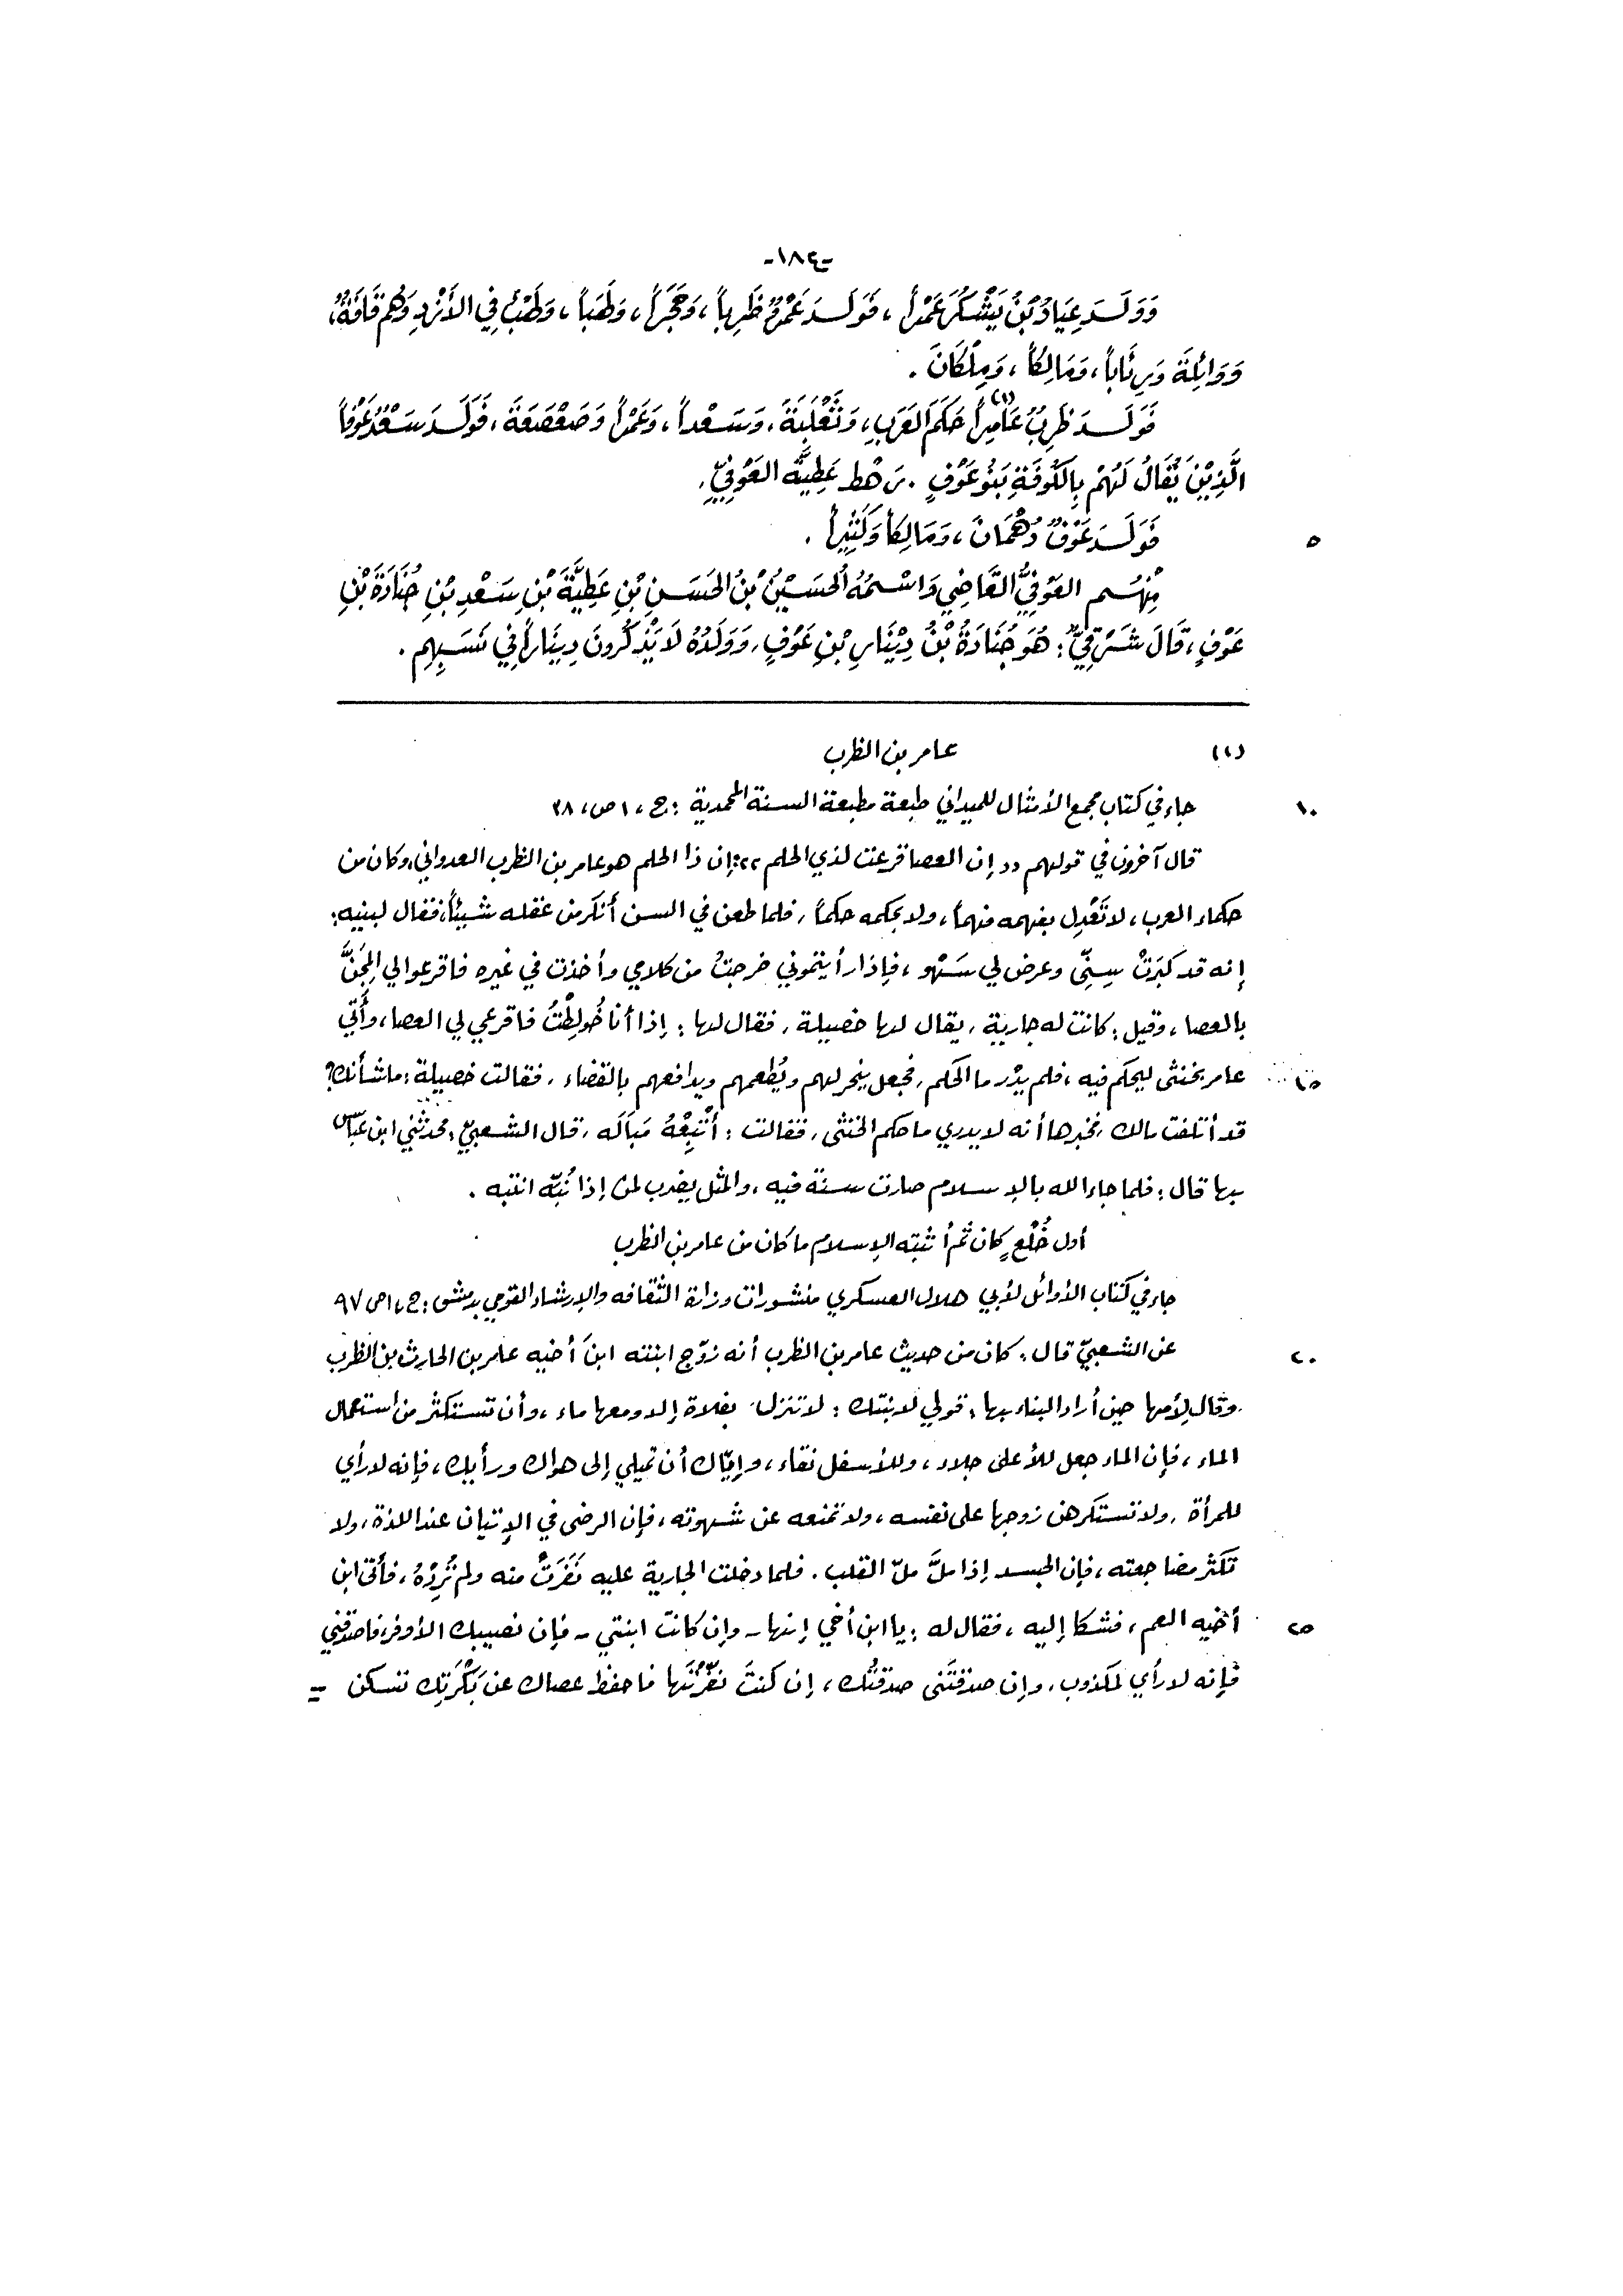 -١٨٤-
وَوَلَدَ عِيَاذُ بْنُ يَشْكُرَ عَمْراً، فَوَلَدَ عَمْرٌو ظَرِباً، وَحَجَراً، وَلَهَباً، وَلَهْبٌ فِي الأَزْدِ وَهُم قَافَةٌ،
وَوَائِلَةَ وَرِئَاباً، وَمَالِكاً، وَمِلْكَانَ .
فَوَلَدَ ظَرِبُ عَامِراً (١) حَكَمَ العَرَبِ، وَثَعْلَبَةَ، وَسَعْداً، وَعَمْراً وَصَعْصَعَةَ، فَوَلَدَ سَعْدٌ عَوْفاً
الَّذِيْنَ يُقَالُ لَهُمْ بِالكُوفَةِ بَنُو عَوْفٍ . رَهْط عَطِيَّة العَوْفِيِّ.
٥ فَوَلَدَ عَوْفٌ دُهْمَانَ، وَمَالِكاً وَكَثِيْراً .
مِنْهُم العَوْفِيُّ القَاضِي وَاسْمُهُ الحُسَيْنُ بْنُ الحَسَنِ بْنِ عَطِيَّةَ بْنِ سَعْدِ بْنِ جُنَادَةَ بْنِ
عَوْفٍ، قَالَ شَرْقِيٌّ : هُوَ جُنَادَةُ بْنُ دِيْنَارِ بْنِ عَوْفٍ، وَوَلَدُهُ لَا يَذْكُرُونَ دِيْنَاراً فِي نَسَبِهِم .
(١) عامر بن الظرب
١٠ جاء في كتاب مجمع الأمثال للميداني طبعة مطبعة السنة المحمدية : ج ، ١ ص، ٣٨
قال آخرون في قولهم ,, إن العصا قرعت لذي الحلم ،، : إن ذا الحلم هو عامر بن الظرب العدواني، وكان من
حكماء العرب، لا تَعْدِل بفهمه فهماً، ولا بحكمه حكماً، فلما طعن في السن أنكر من عقله شيئاً، فقال لبنيه :
إنه قد كَبِرَتْ سِنِّي وعرض لي سَهْو، فإذا رأيتموني خرجتُ من كلامي وأخذت في غيره فاقرعوا لي المِجَنَّ
بالعصا، وقيل : كانت له جارية، يقال لها خصيلة، فقال لها : إذا أنا خُولِطْتُ فاقرعي لي العصا، وأُتِيَ
١٥ عامر بخنثى ليحكم فيه، فلم يدْر ما الحكم، فجعل ينحر لهم ويُطعمهم ويدافعهم بالقضاء، فقالت خصيلة : ما شأنك ؟
قد أتلفت مالك، فخبرها أنه لا يدري ما حكم الخنثى، فقالت : أَتْبِعْهُ مَبَالَه، قال الشعبيّ : فحدثني ابن عبّاس
بها قال : فلما جاء الله بالإسلام صارت سنة فيه، والمثل يضرب لمن إذا نُبِّه انتبه .
أول خُلْعٍ كان ثُمَّ أثبته الإسلام ما كان من عامر بن الظرب
جاء في كتاب الأوائل لأبي هلال العسكري منشورات وزارة الثقافه والإرشاد القومي بدمشق : ج ، ١ ص ٩٧
٢٠ عن الشعبيّ قال : كان من حديث عامر بن الظرب أنه زوّج ابنته ابنَ أخيه عامر بن الحارث بن الظرب
وقال لِأمها حين أراد البناء بها : قولي لابنتك : لا تنزلن بفلاة إلا ومعها ماء، وأن تستكثر من استعمال
الماء، فإن الماء جعل للأعلى جلاء، وللأسفل نقاء، وإيّاك أن تميلي إلى هواك ورأيك، فإنه لا رأي
للمرأة، ولا تستكرهن زوجها على نفسه، ولا تمنعه عن شهوته، فإن الرضى في الإتيان عند اللذة، ولا
تكثر مضاجعته، فإن الجسد إذا ملَّ ملّ القلب . فلما دخلت الجارية عليه نَفَرَتْ منه ولم تُرِدْهُ، فأتى ابن
٢٥ أخيه العم، فشكا إليه، فقال له : يا ابن أخي إنها - وإن كانت ابنتي - فإن نصيبك الأوفر، فاصدقني
فإنه لا رأي لمكذوب، وإن صدقتَني صدقتُك، إن كنتَ نفَّرْتَها فاحفظ عصاك عن بَكْرَتِك تسكن =